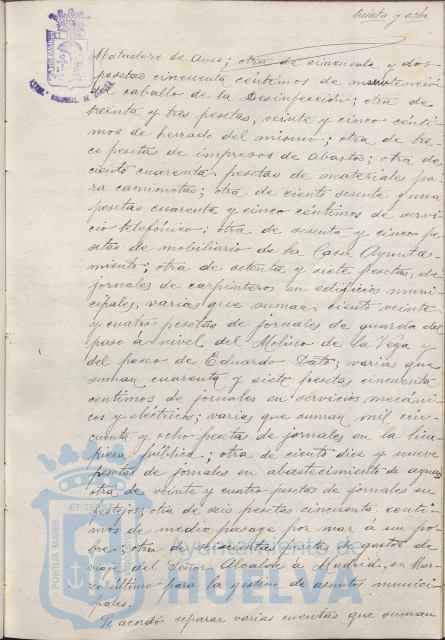 treinta y ocho
Matadero de Aves; otra de cincuenta y dos
pesetas cincuenta céntimos de manutención
del caballo de la Desinfección; otra de
treinta y tres pesetas, veinte y cinco cénti-
mos de herrado del mismo; otra de tre-
ce pesetas de impresos de Abastos; otra de
ciento cuarenta pesetas de materiales pa-
ra camionetas; otra de ciento sesenta y una
pesetas cuarenta y cinco centimos de servi-
cio telefónico; otra de sesenta y cinco pe-
setas de mobiliario de la Casa Ayunta-
miento; otra de setenta y siete pesetas, de
jornales de carpinteros en edificios muni-
cipales, varias que suman ciento veinte
y cuatro pesetas de jornales de guarda del
paso á nivel del Molino de la Vega y
del paseo de Eduardo Dato; varias que
suman cuarenta y siete pesetas, cincuenta
centimos de jornales en servicios mecáni-
cos y eléctricos; varias que suman mil cin-
cuenta y ocho pesetas de jornales en la lim-
pieza pública; otra de ciento diez y nueve
pesetas de jornales en abastecimiento de aguas
otra de veinte y cuatro pesetas de jornales en
festejos; otra de seis pesetas cincuenta centi-
mos de medio pasage por mar á un po-
bre; otra de seiscientas pesetas de gastos de
viaje del Señor Alcalde á Madrid, en Mar-
zo último para la gestion de asuntos munici-
pales.
Se acordó separar varias cuentas que suman
PORTUS MARIS
ET TERRAE
Ayuntamiento de
HUELVA